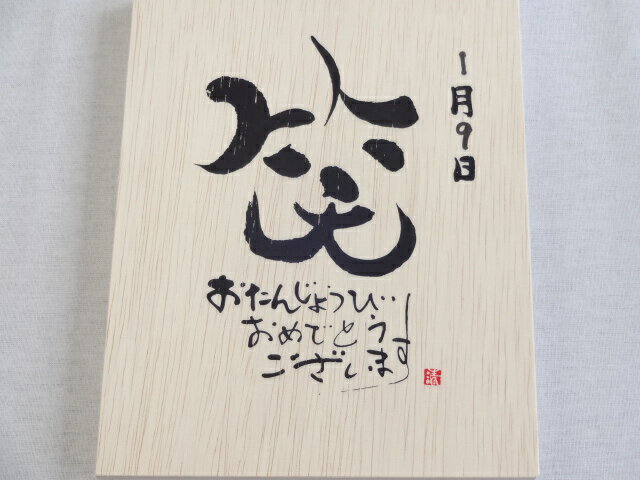 1月9日
笑
おたんじょうび
おめでとう
ございます